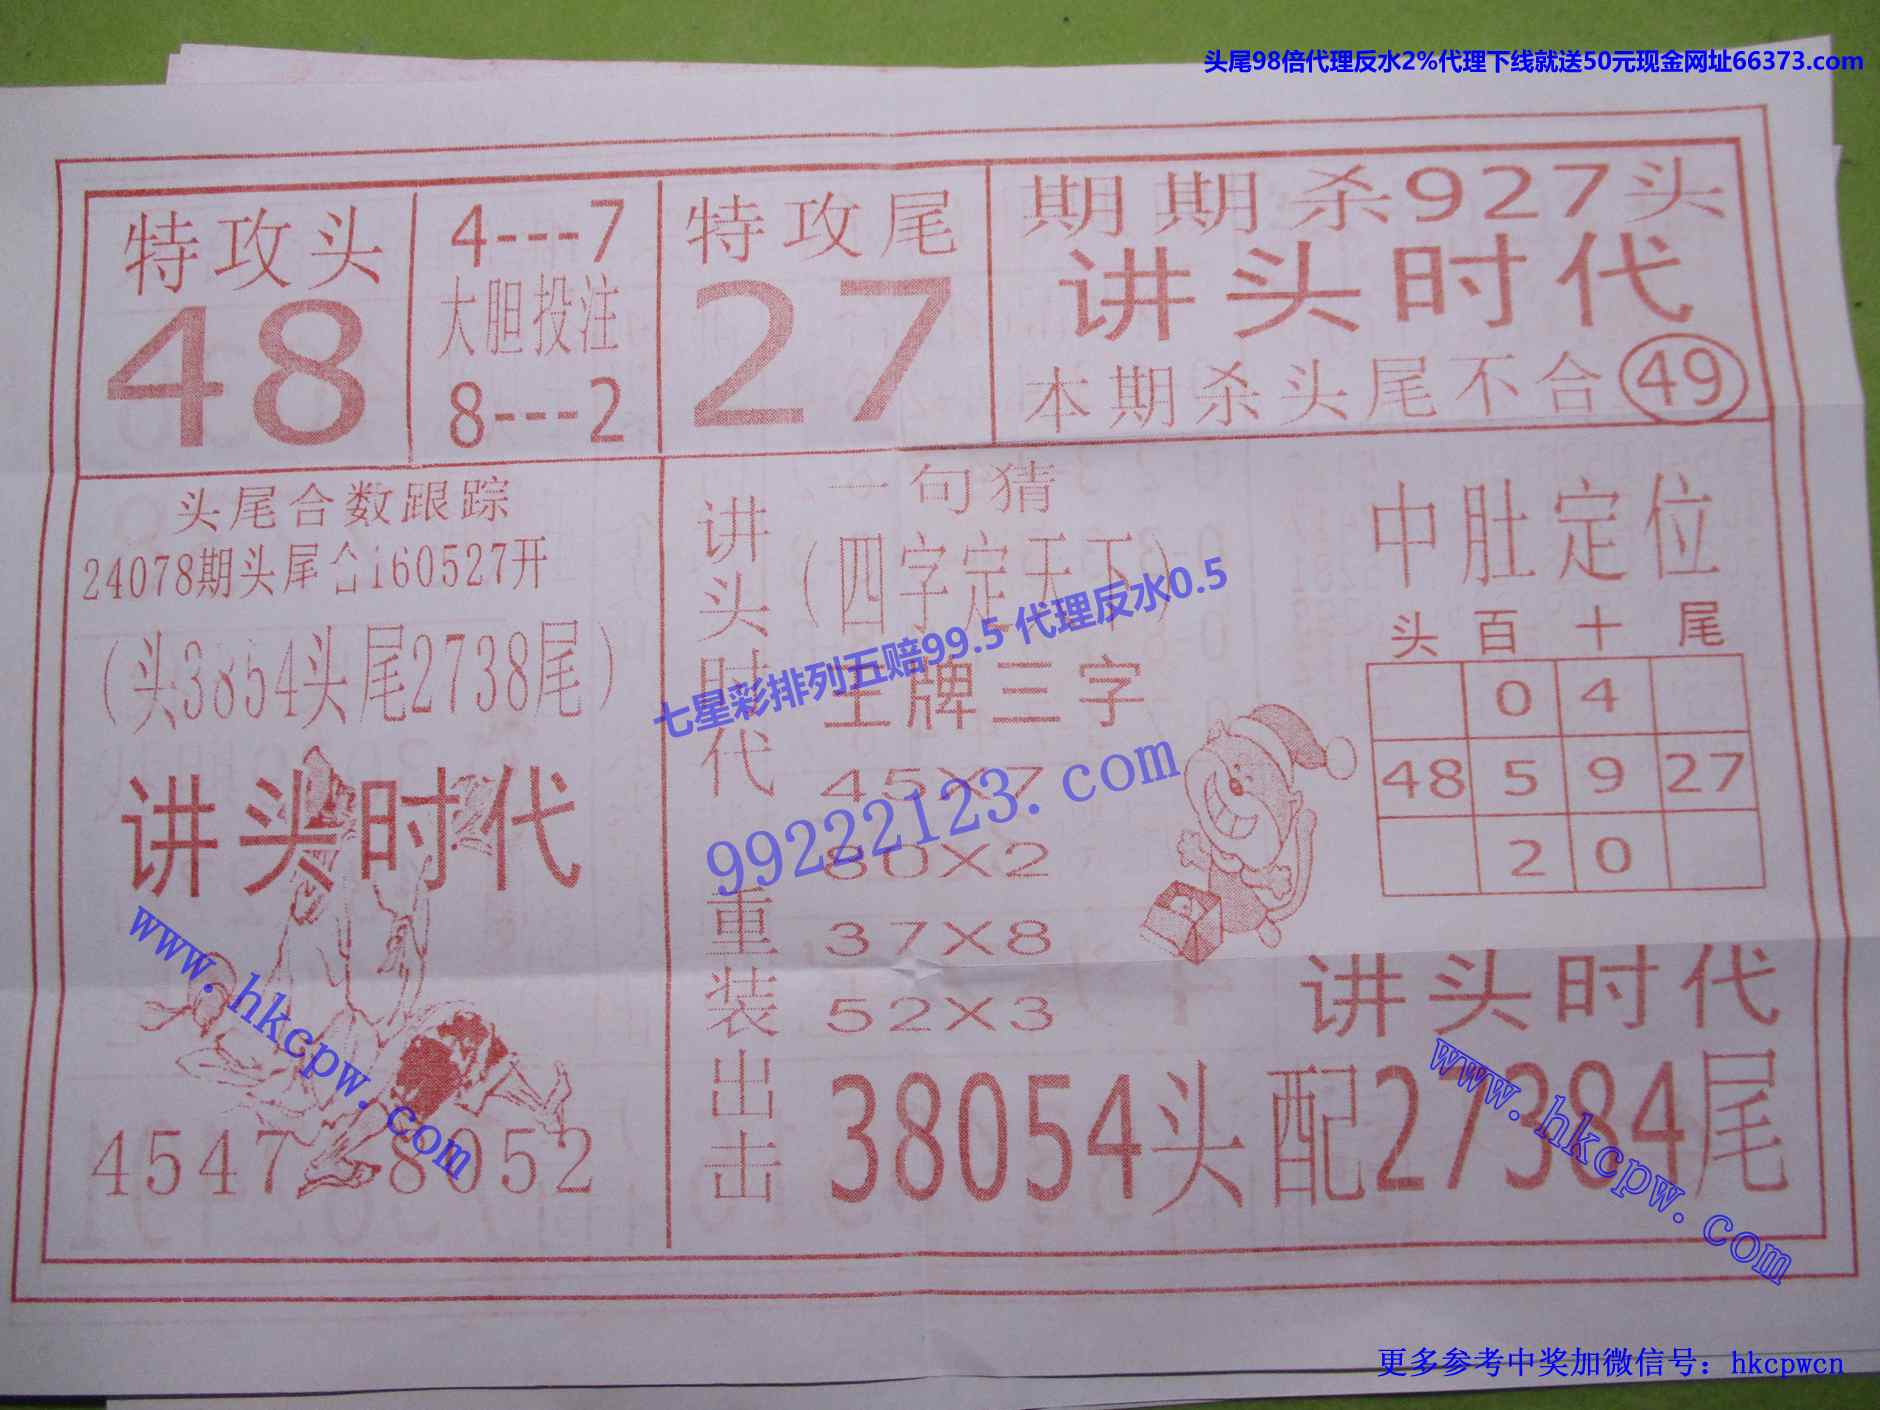 头尾98倍代理反水2%代理下线就送50元现金网址66373.com
特攻头
48
4---7
大胆投注
8---2
特攻尾
27
期期杀927头
讲头时代
本期杀头尾不合49
头尾合数跟踪
24078期头尾合160527开
(头3854头尾2738尾)
讲头时代
4547 8052
讲头时代重装出击
一句猜
(四字定天下)
王牌三字
45X7
80X2
37X8
52X3
38054头配27384尾
中肚定位
头 百 十 尾
0 4
48 5 9 27
2 0
讲头时代
七星彩排列五赔99.5 代理反水0.5
99222123.com
www.hkcpw.com
www.hkcpw.com
更多参考中奖加微信号：hkcpwcn